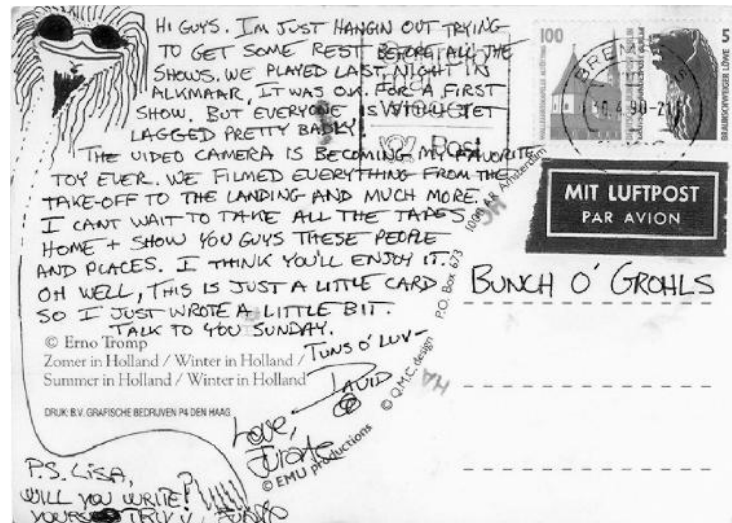 HI GUYS. IM JUST HANGIN OUT TRYING
TO GET SOME REST BEFORE ALL THE
SHOWS. WE PLAYED LAST NIGHT IN
ALKMAAR, IT WAS OK FOR A FIRST
SHOW. BUT EVERYONE IS STILL JET
LAGGED PRETTY BADLY.
THE VIDEO CAMERA IS BECOMING MY FAVORITE
TOY EVER. WE FILMED EVERYTHING FROM THE
TAKE-OFF TO THE LANDING AND MUCH MORE.
I CANT WAIT TO TAKE ALL THE TAPES
HOME + SHOW YOU GUYS THESE PEOPLE
AND PLACES. I THINK YOU'LL ENJOY IT.
OH WELL, THIS IS JUST A LITTLE CARD
SO I JUST WROTE A LITTLE BIT.
TALK TO YOU SUNDAY.
TUNS O' LUV-
DAVID
Love,
P.S. LISA,
WILL YOU WRITE?
YOURS TRULY,
© Erno Tromp
Zomer in Holland / Winter in Holland /
Summer in Holland / Winter in Holland
DRUK: B.V. GRAFISCHE BEDRIJVEN P4 DEN HAAG
© EMU productions
© Q.M.C. design
P.O. Box 673
Amsterdam
Post
100
5
90-21
MIT LUFTPOST
PAR AVION
BUNCH O' GROHLS